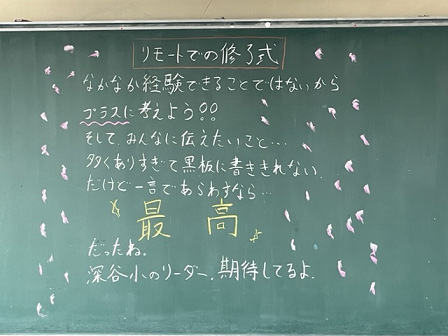 リモートでの修了式
なかなか経験できることではないから
プラスに考えよう!!
そして、みんなに伝えたいこと…
多くありすぎて黒板に書ききれない。
だけど一言であらわすなら…
最高
だったね。
深谷小のリーダー、期待してるよ。